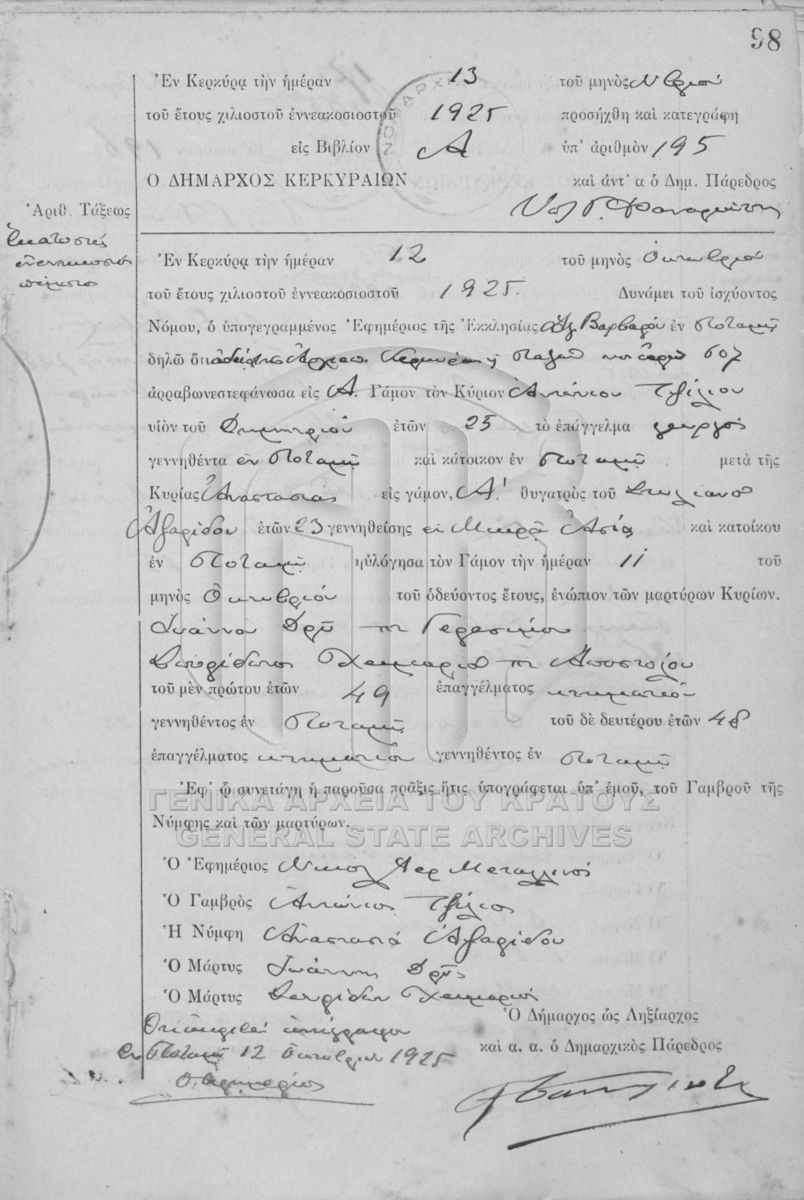 98
Ἐν Κερκύρᾳ τὴν ἡμέραν 13 τοῦ μηνὸς Νβρίου
τοῦ ἔτους χιλιοστοῦ ἐννεακοσιοστοῦ 1925 προσήχθη καὶ κατεγράφη
εἰς Βιβλίον Α ὑπ' ἀριθμὸν 195
Ο ΔΗΜΑΡΧΟΣ ΚΕΡΚΥΡΑΙΩΝ καὶ ἀντ' α ὁ Δημ. Πάρεδρος
Ἀριθ. Τάξεως
Ἑκατοστὸς
ἐνενηκοστὸς
πέμπτος
Ἐν Κερκύρᾳ τὴν ἡμέραν 12 τοῦ μηνὸς Ὀκτωβρίου
τοῦ ἔτους χιλιοστοῦ ἐννεακοσιοστοῦ 1925. Δυνάμει τοῦ ἰσχύοντος
Νόμου, ὁ ὑπογεγραμμένος Ἐφημέριος τῆς Ἐκκλησίας Ἁγ Βαρβάρου ἐν Ποταμῷ
δηλῶ ὅτι ἀδείᾳ τῆς Ἀρχιεπ. Κερκύρας 507
ἀρραβωνεστεφάνωσα εἰς Α. Γάμον τὸν Κύριον Ἀντώνιον Τζίλιον
υἱὸν τοῦ Δημητρίου ἐτῶν 25 τὸ ἐπάγγελμα γεωργὸς
γεννηθέντα ἐν Ποταμῷ καὶ κάτοικον ἐν Ποταμῷ μετὰ τῆς
Κυρίας Ἀναστασίας εἰς γάμον, Α! θυγατρὸς τοῦ Στυλιανοῦ
Ἀζαρίδου ἐτῶν 23 γεννηθείσης ἐν Μικρᾷ Ἀσίᾳ καὶ κατοίκου
ἐν Ποταμῷ ηὐλόγησα τὸν Γάμον τὴν ἡμέραν 11 τοῦ
μηνὸς Ὀκτωβρίου τοῦ ὁδεύοντος ἔτους, ἐνώπιον τῶν μαρτύρων Κυρίων.
Ἰωάννου Δρῦ του Γερασίμου
Σπυρίδωνος Χειμαριοῦ του Αποστόλου
τοῦ μὲν πρώτου ἐτῶν 49 ἐπαγγέλματος κτηματίου
γεννηθέντος ἐν Ποταμῷ τοῦ δὲ δευτέρου ἐτῶν 48
ἐπαγγέλματος κτηματίου γεννηθέντος ἐν Ποταμῷ
Ἐφ' ᾧ συνετάγη ἡ παροῦσα πρᾶξις ἥτις ὑπογράφεται ὑπ' ἐμοῦ, τοῦ Γαμβροῦ τῆς
Νύμφης καὶ τῶν μαρτύρων.
ΓΕΝΙΚΑ ΑΡΧΕΙΑ ΤΟΥ ΚΡΑΤΟΥΣ
GENERAL STATE ARCHIVES
Ὁ Ἐφημέριος Νικόλ Ιερ Μεταλληνὸς
Ὁ Γαμβρὸς Ἀντώνιος Τζίλιος
Ἡ Νύμφη Ἀναστασία Ἀζαρίδου
Ὁ Μάρτυς Ἰωάννης Δρῦς
Ὁ Μάρτυς Σπυρίδων Χειμαριός
Ὁ Δήμαρχος ὡς Ληξίαρχος
καὶ α. α. ὁ Δημαρχικὸς Πάρεδρος
ἀντίγραφον
Ἐν Ποταμῷ 12 Οκτωβρίου 1925
Ο Εφημέριος